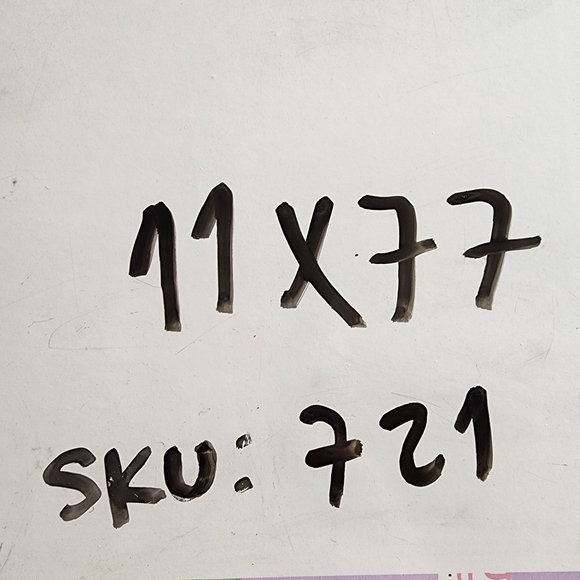 11X77
SKU: 721